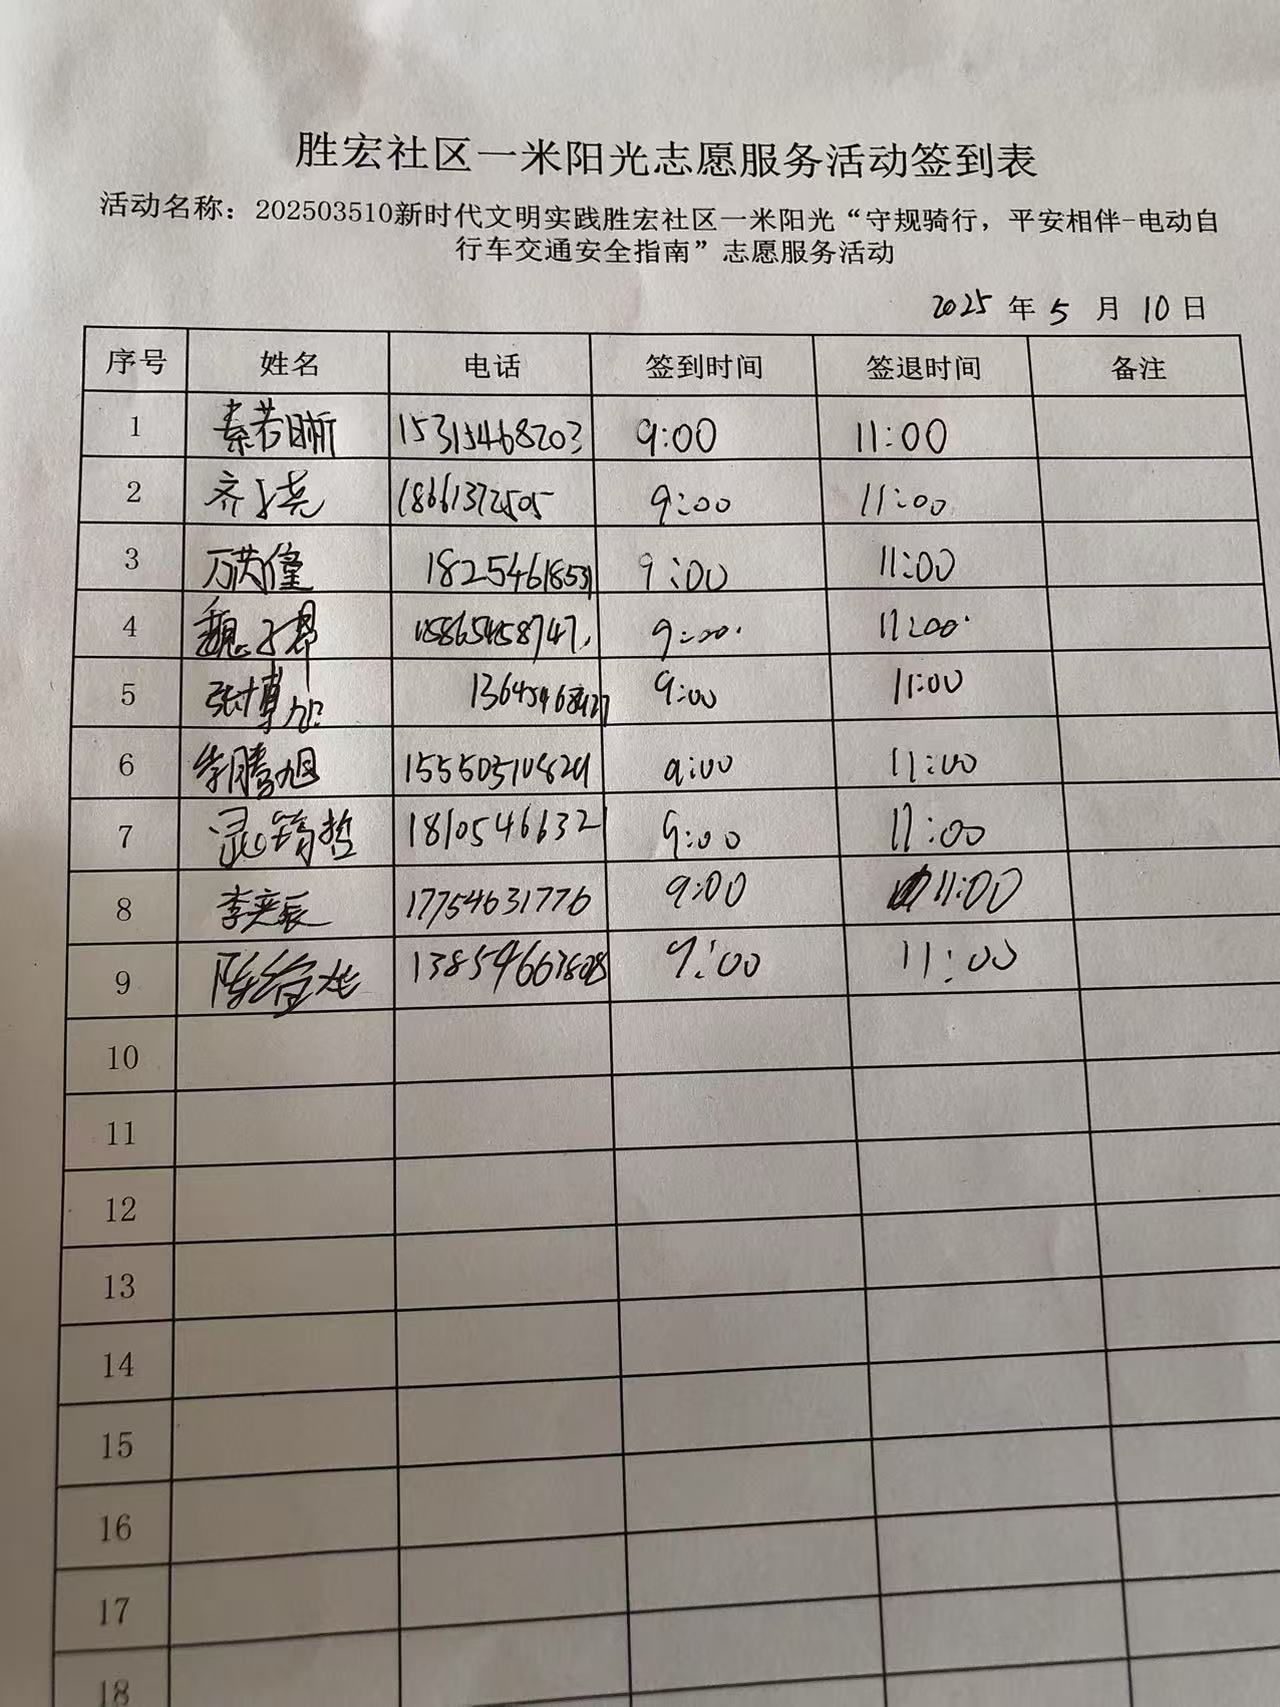 胜宏社区一米阳光志愿服务活动签到表
活动名称：202503510新时代文明实践胜宏社区一米阳光“守规骑行，平安相伴-电动自
行车交通安全指南”志愿服务活动
2025 年 5 月 10 日
序号 姓名 电话 签到时间 签退时间 备注
1 秦若晰 15315468203 9:00 11:00
2 18661372505 9:00 11:00
3 18254618531 9:00 11:00
4 15865458747. 9:00. 11:00.
5 张博 9:00 11:00
6 李腾旭 9:00 11:00
7 18105466321 9:00 11:00
8 李奕辰 17754631776 9:00 11:00
9 9:00 11:00
10
11
12
13
14
15
16
17
18